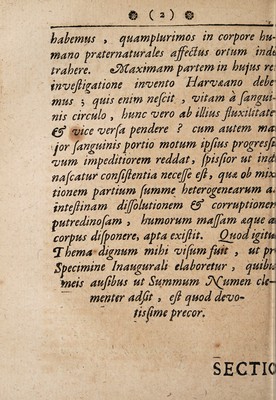 (2)
habemus, quamplurimos in corpore hu-
mano præternaturales affectus ortum inde
trahere. Maximam partem in hujus rei
investigatione invento Harvæano debe
mus; quis enim nescit, vitam à sangui-
nis circulo, hunc vero ab illius fluxilitate
& vice versa pendere? cum autem ma
jor sanguinis portio motum ipsius progressi
vum impeditiorem reddat, spissior ut ind
nascatur consistentia necesse est, quæ ob mix
tionem partium summe heterogenearum a
intestinam dissolutionem & corruptionem
putredinosam, humorum massam æque a
corpus disponere, apta existit. Quod igitu
Thema dignum mihi visum fuit, ut pr
Specimine Inaugurali elaboretur, quibu
meis ausibus ut Summum Numen cle-
menter adsit, est quod devo-
tissime precor.
SECTIO